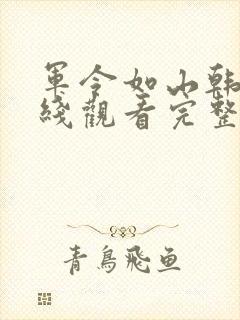 軍令如山韩
綫觀看完整
青鳥飛魚